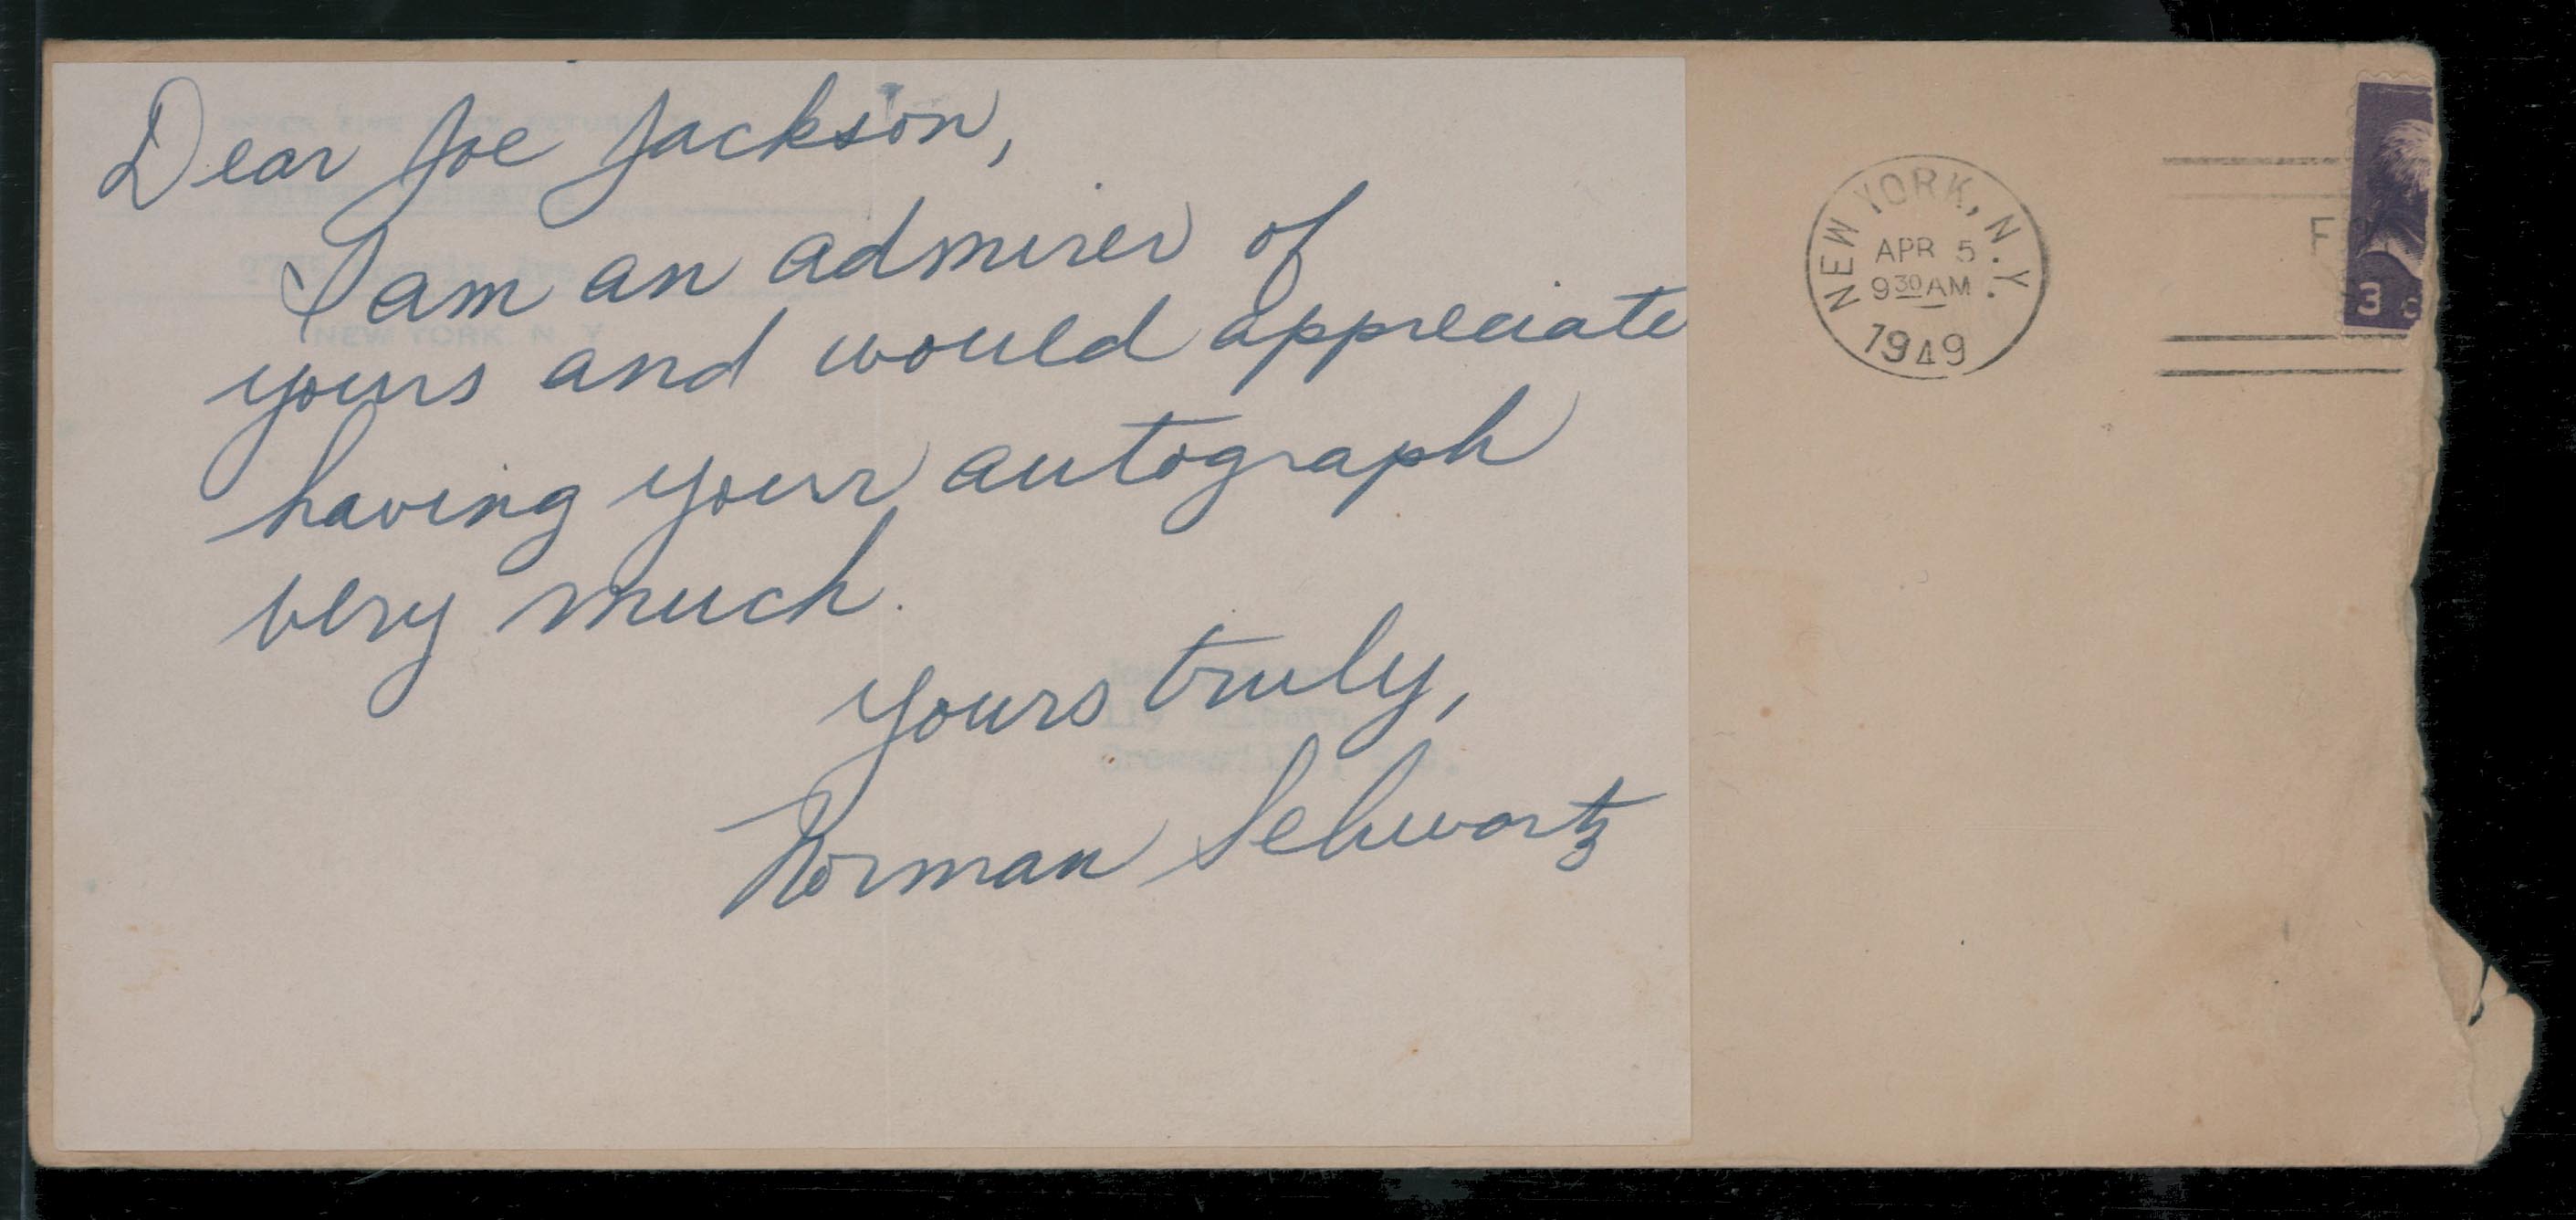 Dear Joe Jackson,
I am an admirer of
yours and would appreciate
having your autograph
very much.
yours truly,
Norman Schwartz
NEW YORK, N.Y.
APR 5
9 30 AM
1949
3
NEW YORK N. Y.